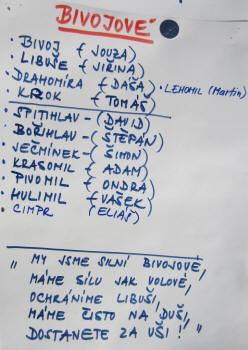 BIVOJOVÉ
· BIVOJ (JOUZA)
· LIBUŠE (JIŘINA)
· DRAHOMÍRA (DAŠA) · LEHOMIL (Martin)
· KROK (TOMÁŠ)
· SPITIHLAV - (DAVID)
· BOŘIHLAV - (ŠTĚPÁN)
· JEČMÍNEK - (ŠIMON)
· KRASOMIL - (ADAM)
· PIVOMIL - (ONDRA)
· HULIMIL - (VAŠEK)
· CIMPR (ELIÁŠ)
„ MY JSME SILNÍ BIVOJOVÉ,
MÁME SÍLU JAK VOLOVÉ,
OCHRÁNÍME LIBUŠI,
MÁME ČISTO NA DUŠI,
DOSTANETE ZA UŠI! "